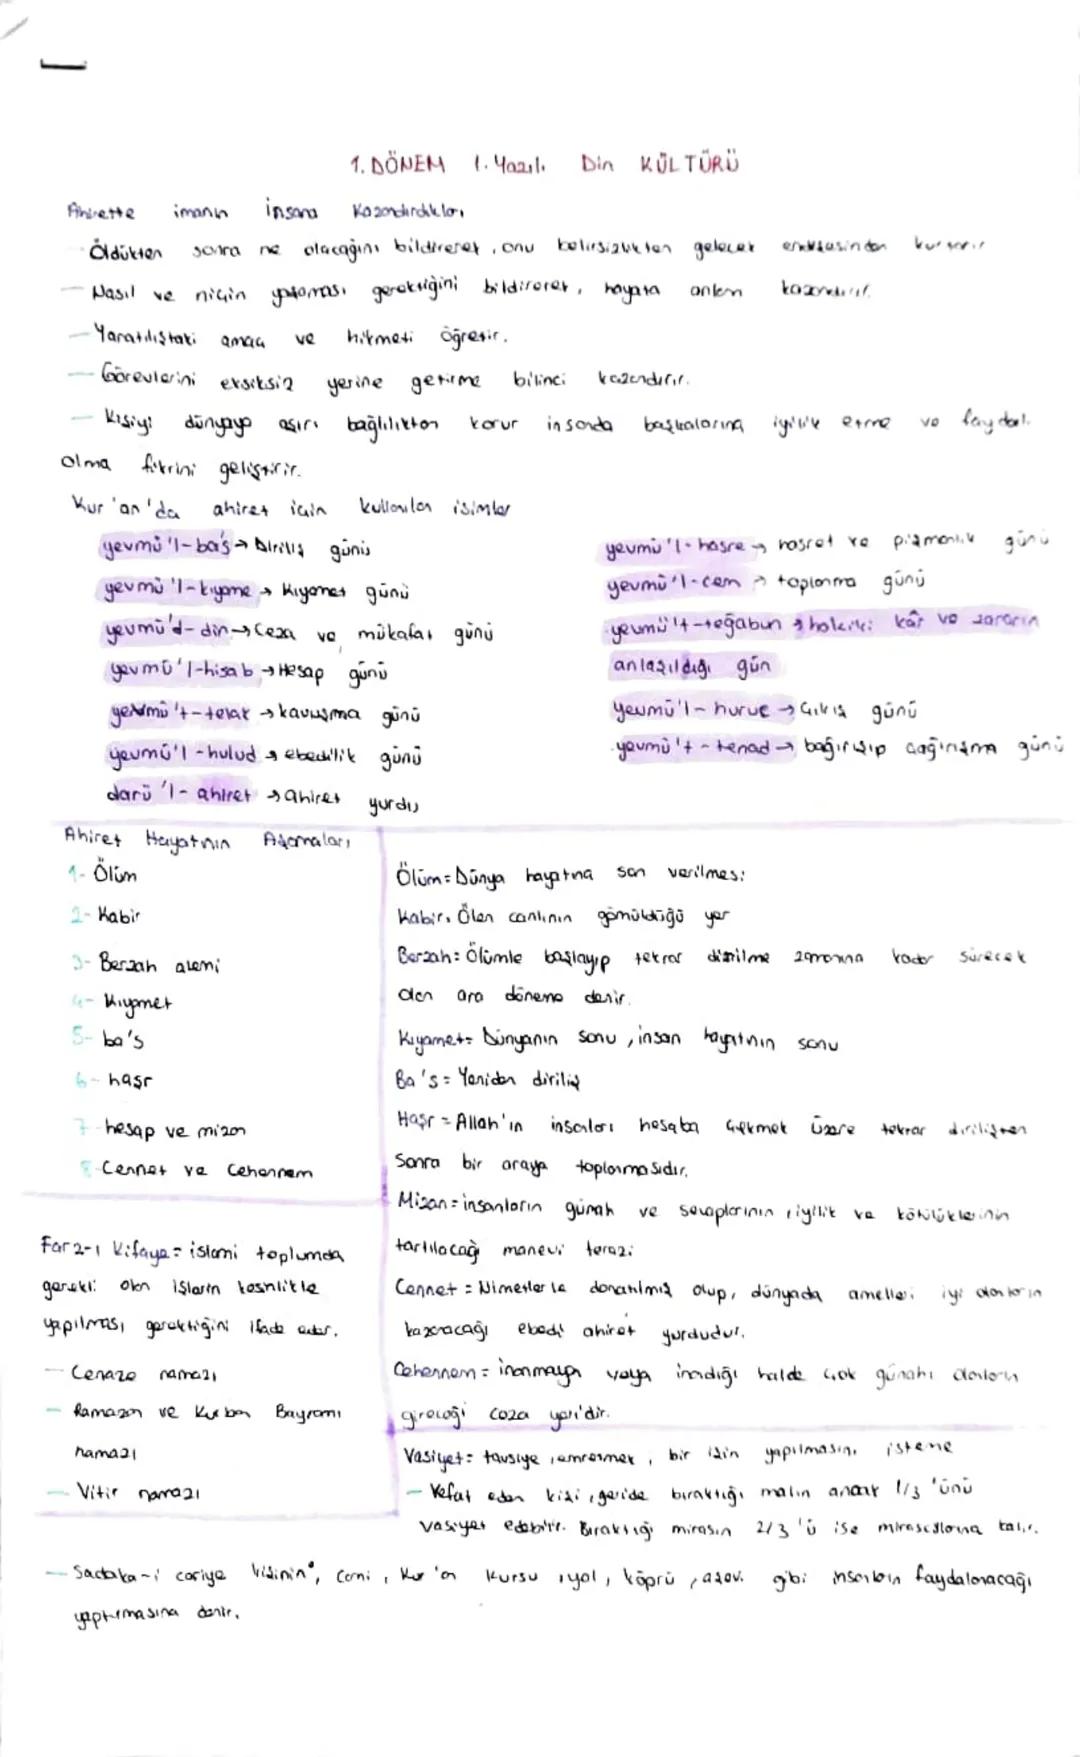 1. DÖNEM 1. Yazılı Din KÜLTÜRÜ
Ahirette imanın insana Kazandırdıkları
Öldükten sonra ne olacağını bildirerek, onu belirsizlikten gelecek endişesinden kurtarır
— Nasıl ve niçin yaşaması gerektiğini bildirerek, hayata anlam kazandırır.
— Yaratılıştaki amaç ve hikmeti öğretir.
— Görevlerini eksiksiz yerine getirme bilinci kazandırır.
— Kişiyi dünyaya aşırı bağlılıktan korur insanda başkalarına iyilik etme ve faydalı
olma fikrini geliştirir.
Kur'an'da ahiret için kullanılan isimler
yevmü'l-ba's → Diriliş günü
yevmü'l-kıyame → Kıyamet günü
yevmü'd-din → Ceza ve mükafat günü
yevmü'l-hisab → Hesap günü
yevmü't-telak → kavuşma günü
yevmü'l-hulud → ebedilik günü
darü'l-ahiret → ahiret yurdu
yevmü'l-hasre → hasret ve pişmanlık günü
yevmü'l-cem → toplanma günü
yevmü't-teğabun → hakiki kâr ve zararın
anlaşıldığı gün
yevmü'l-huruc → Çıkış günü
yevmü't-tenad → bağırışıp çağırışma günü
Ahiret Hayatının Aşamaları
1- Ölüm
2- Kabir
3- Berzah alemi
4- Kıyamet
5- ba's
6- haşr
7- hesap ve mizan
8- Cennet ve Cehennem
Farz-ı Kifaye = islami toplumda
gerekli olan işlerin kesinlikle
yapılması gerektiğini ifade eder.
— Cenaze namazı
— Ramazan ve Kurban Bayramı
namazı
— Vitir namazı
Ölüm = Dünya hayatına son verilmesi
Kabir: Ölen canlının gömüldüğü yer
Berzah: Ölümle başlayıp tekrar dirilme zamanına kadar sürecek
olan ara döneme denir.
Kıyamet = Dünyanın sonu, insan hayatının sonu
Ba's = Yeniden diriliş
Haşr = Allah'ın insanları hesaba çekmek üzere tekrar dirilişten
Sonra bir araya toplanmasıdır.
Mizan = insanların günah ve sevaplarının, iyilik ve kötülüklerinin
tartılacağı manevi terazi
Cennet = Nimetlerle donatılmış olup, dünyada amelleri iyi olanların
kazanacağı ebedi ahiret yurdudur.
Cehennem = inanmayan veya inandığı halde çok günahı olanların
gireceği ceza yeri'dir.
Vasiyet = tavsiye, emretmek, bir işin yapılmasını isteme
— Vefat eden kişi, geride bıraktığı malın ancak 1/3'ünü
vasiyet edebilir. Bıraktığı mirasın 2/3'ü ise mirasçılarına kalır.
— Sadaka-i cariye kişinin, Cami, Kur'an kursu, yol, köprü, aşevi gibi insanların faydalanacağı
yaptırmasına denir.